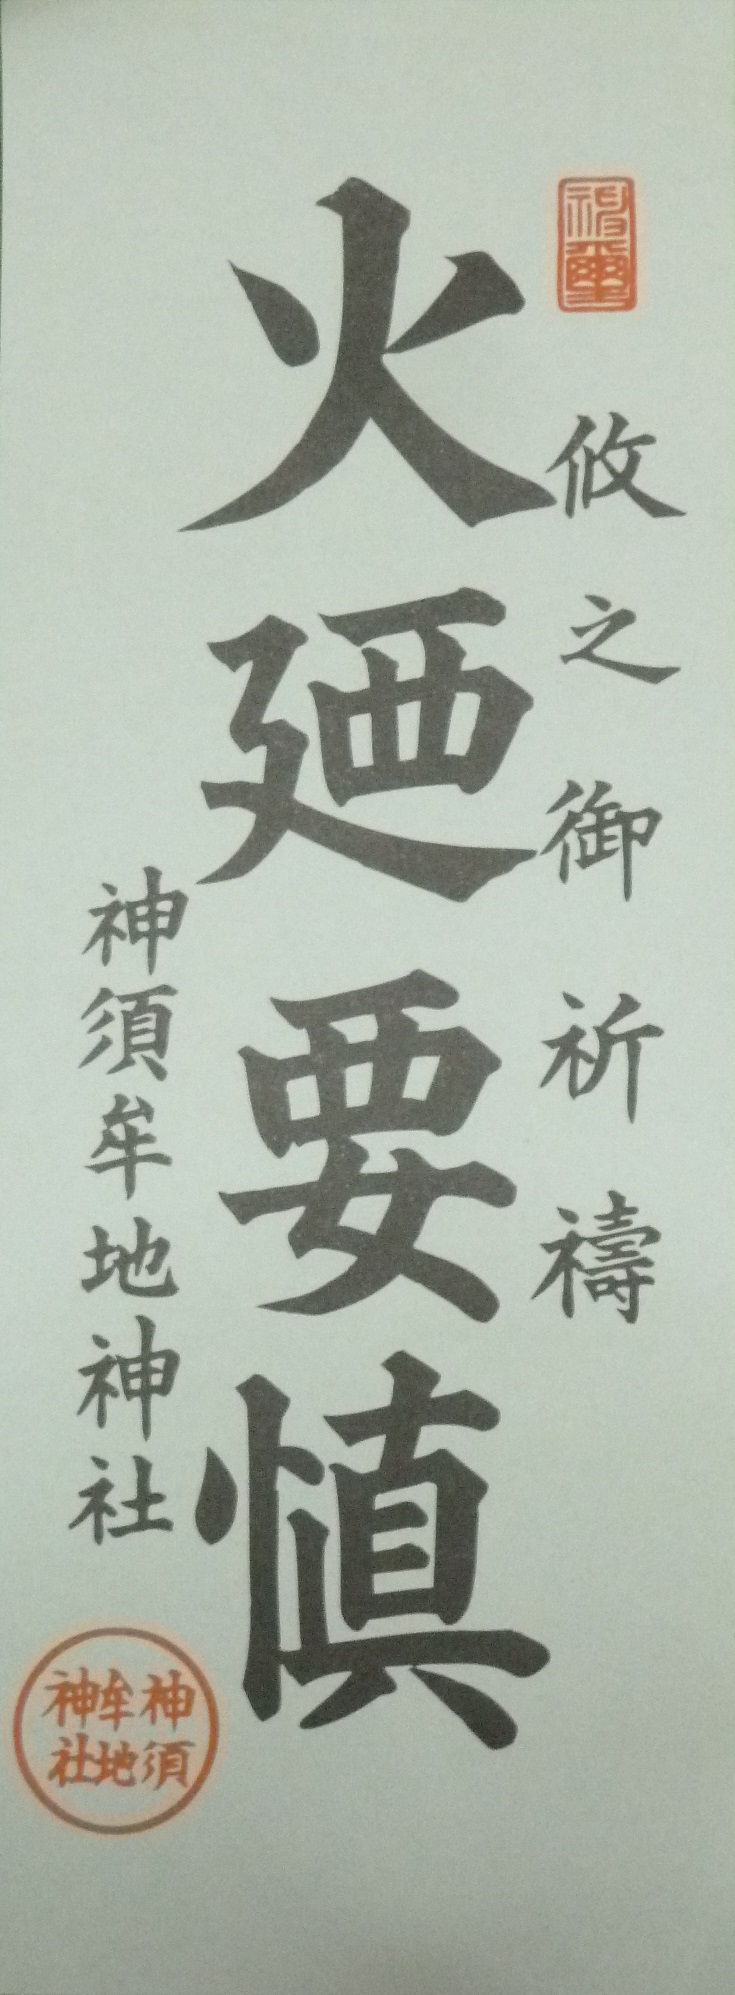 攸之御祈禱
火廼要慎
神須牟地神社
神須
牟地
神社